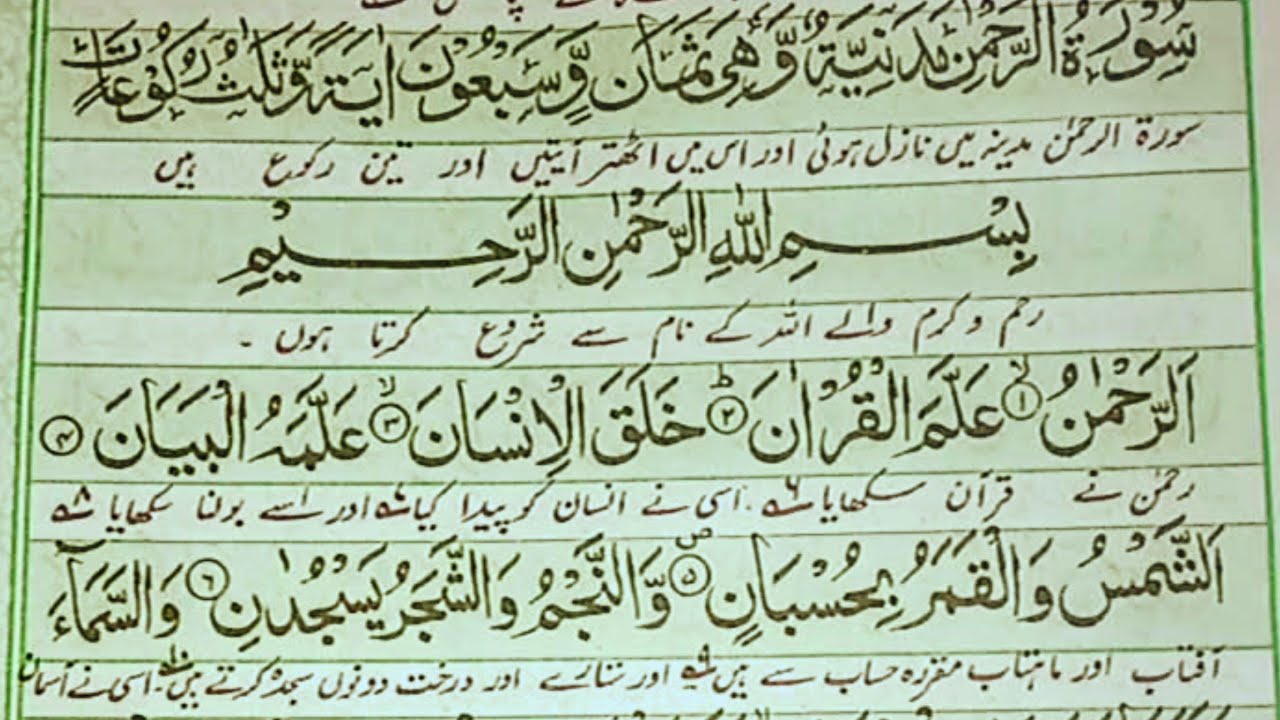 سُوْرَةُ الرَّحْمٰنِ مَدَنِيَّةٌ وَّهِيَ ثَمَانٍ وَّسَبْعُوْنَ اٰيَةً وَّثَلٰثُ رُكُوْعَاتٍ
سورۃ الرحمٰن مدینہ میں نازل ہوئی اور اس میں اٹھتر آیتیں اور تین رکوع ہیں
بِسْمِ اللّٰهِ الرَّحْمٰنِ الرَّحِيْمِ
رحم وکرم والے اللہ کے نام سے شروع کرتا ہوں ۔
اَلرَّحْمٰنُ ۙ﴿۱﴾ عَلَّمَ الْقُرْاٰنَ ؕ﴿۲﴾ خَلَقَ الْاِنْسَانَ ۙ﴿۳﴾ عَلَّمَهُ الْبَيَانَ ﴿۴﴾
رحمٰن نے قرآن سکھایا ۶ اسی نے انسان کو پیدا کیا ۷ اور اسے بولنا سکھایا ۸
اَلشَّمْسُ وَالْقَمَرُ بِحُسْبَانٍ ۪﴿۵﴾ وَّالنَّجْمُ وَالشَّجَرُ يَسْجُدٰنِ ﴿۶﴾ وَالسَّمَآءَ
آفتاب اور ماہتاب مقررہ حساب سے ہیں ۹ اور ستارے اور درخت دونوں سجدہ کرتے ہیں ۱۰ ۔ اسی نے آسمان